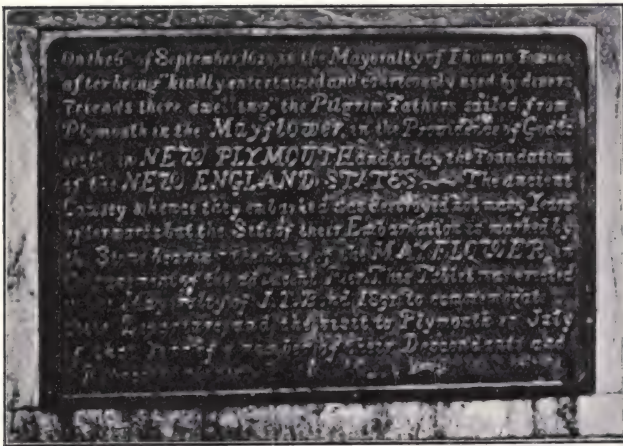 On the 6th of September 1620, in the Mayoralty of Thomas Fownes,
after being "kindly entertained and courteously used by divers
Friends there dwelling", the Pilgrim Fathers sailed from
Plymouth in the Mayflower, in the Providence of God to
settle in NEW PLYMOUTH and to lay the Foundation
of the NEW ENGLAND STATES The ancient
Causey whence they embarked was destroyed not many Years
afterwards but the Site of their Embarkation is marked by
the Stone bearing the name of the MAYFLOWER in
the pavement of the adjacent Pier. This Tablet was erected
in the Mayoralty of J.T. Bond 1891 to commemorate
their Departure, and the visit to Plymouth in July
of a number of their Descendants and